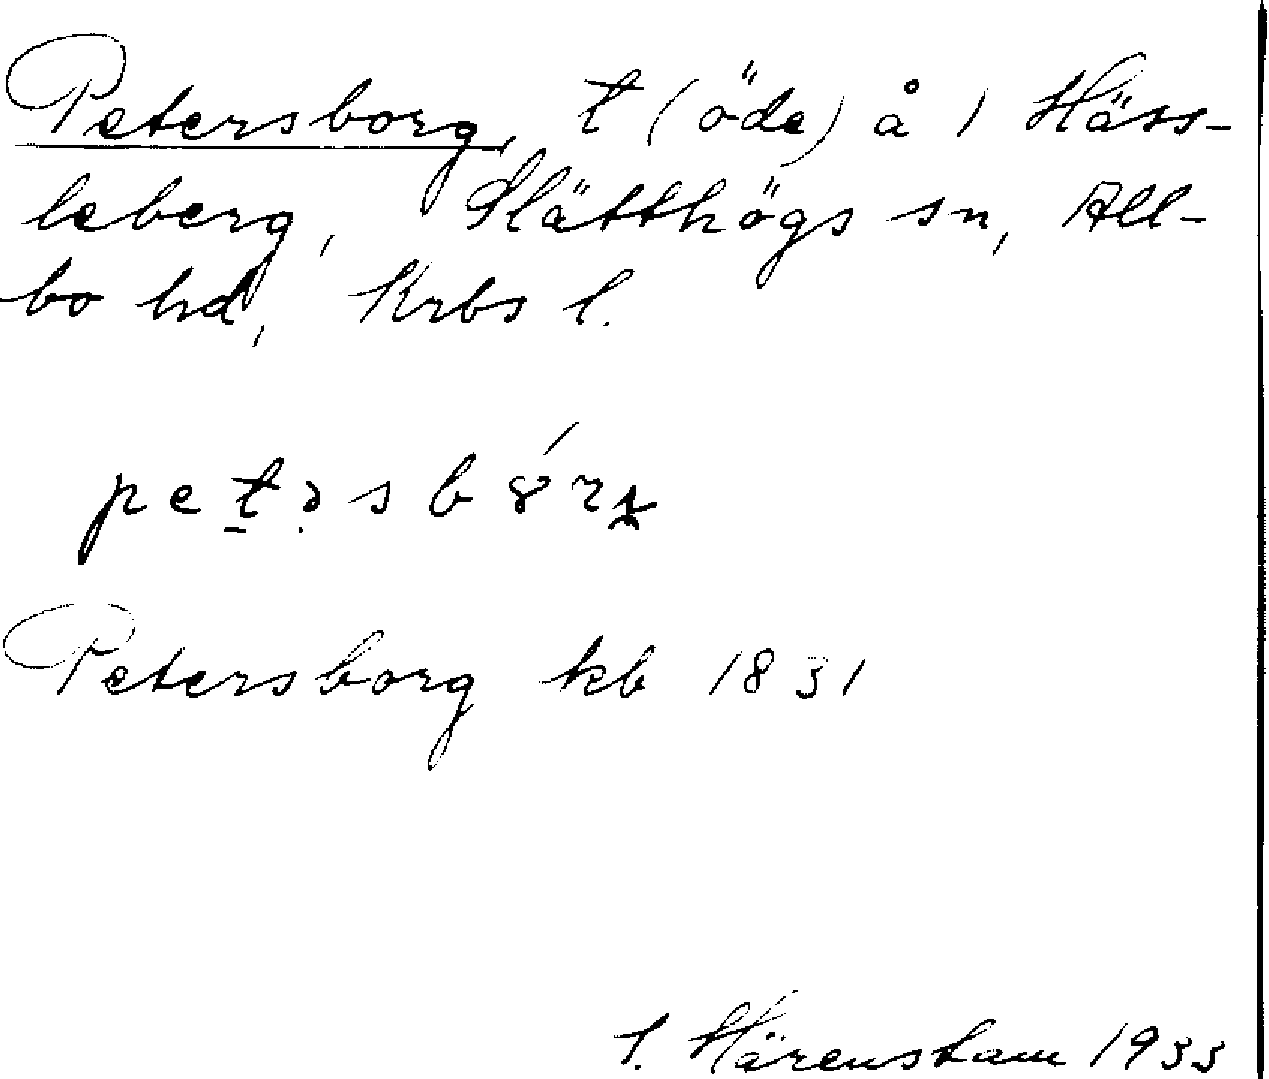 Petersborg, t (öde) å 1 Häss-
leberg, Slätthögs sn, All-
bo hd, Krbs l.
Petersborg kb 1831
Härenstam 1933